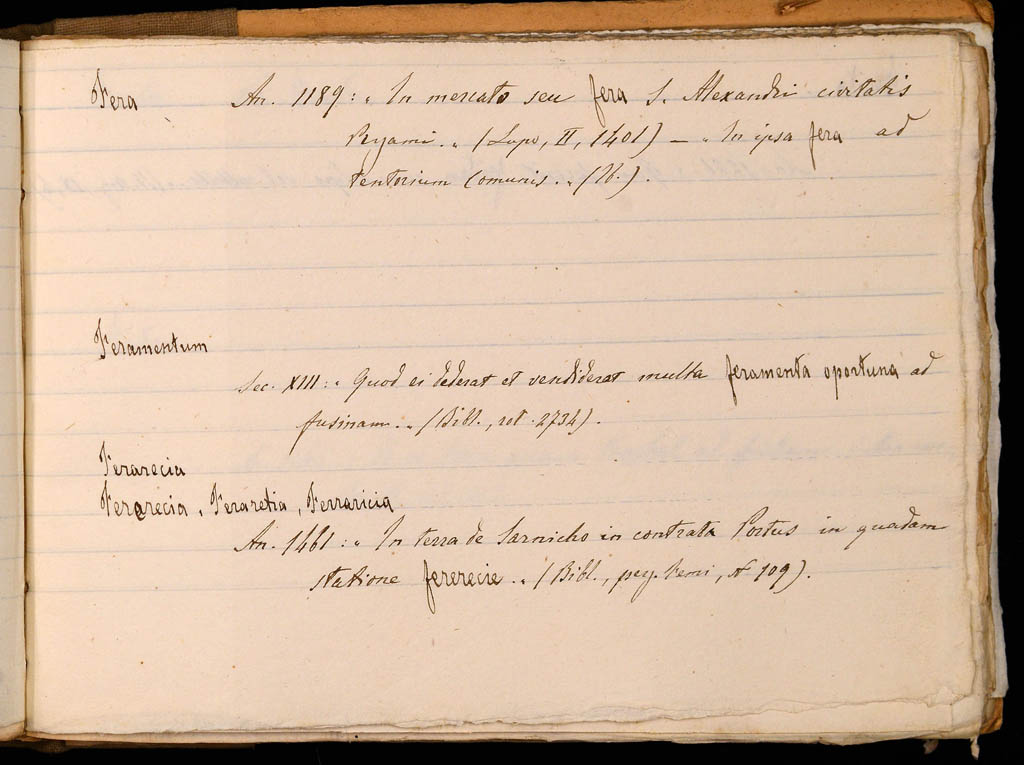 Fera An. 1189: „ In mercato seu fera S. Alexandri civitatis
Pgami. „ (Lupo, II, 1401) — „ In ipsa fera ad
tentorium Comunis. „ (Ib.).
Feramentum
Sec. XIII: „ Quod ei dederat et vendiderat multa feramenta oportuna ad
fusinam. „ (Bibl., rot. 2734).
Ferarecia
Ferarecia, Feraretia, Ferraricia
An. 1461: „ In terra de Sarnicho in contrata Portus in quadam
statione fererecie. „ (Bibl., N° 709).